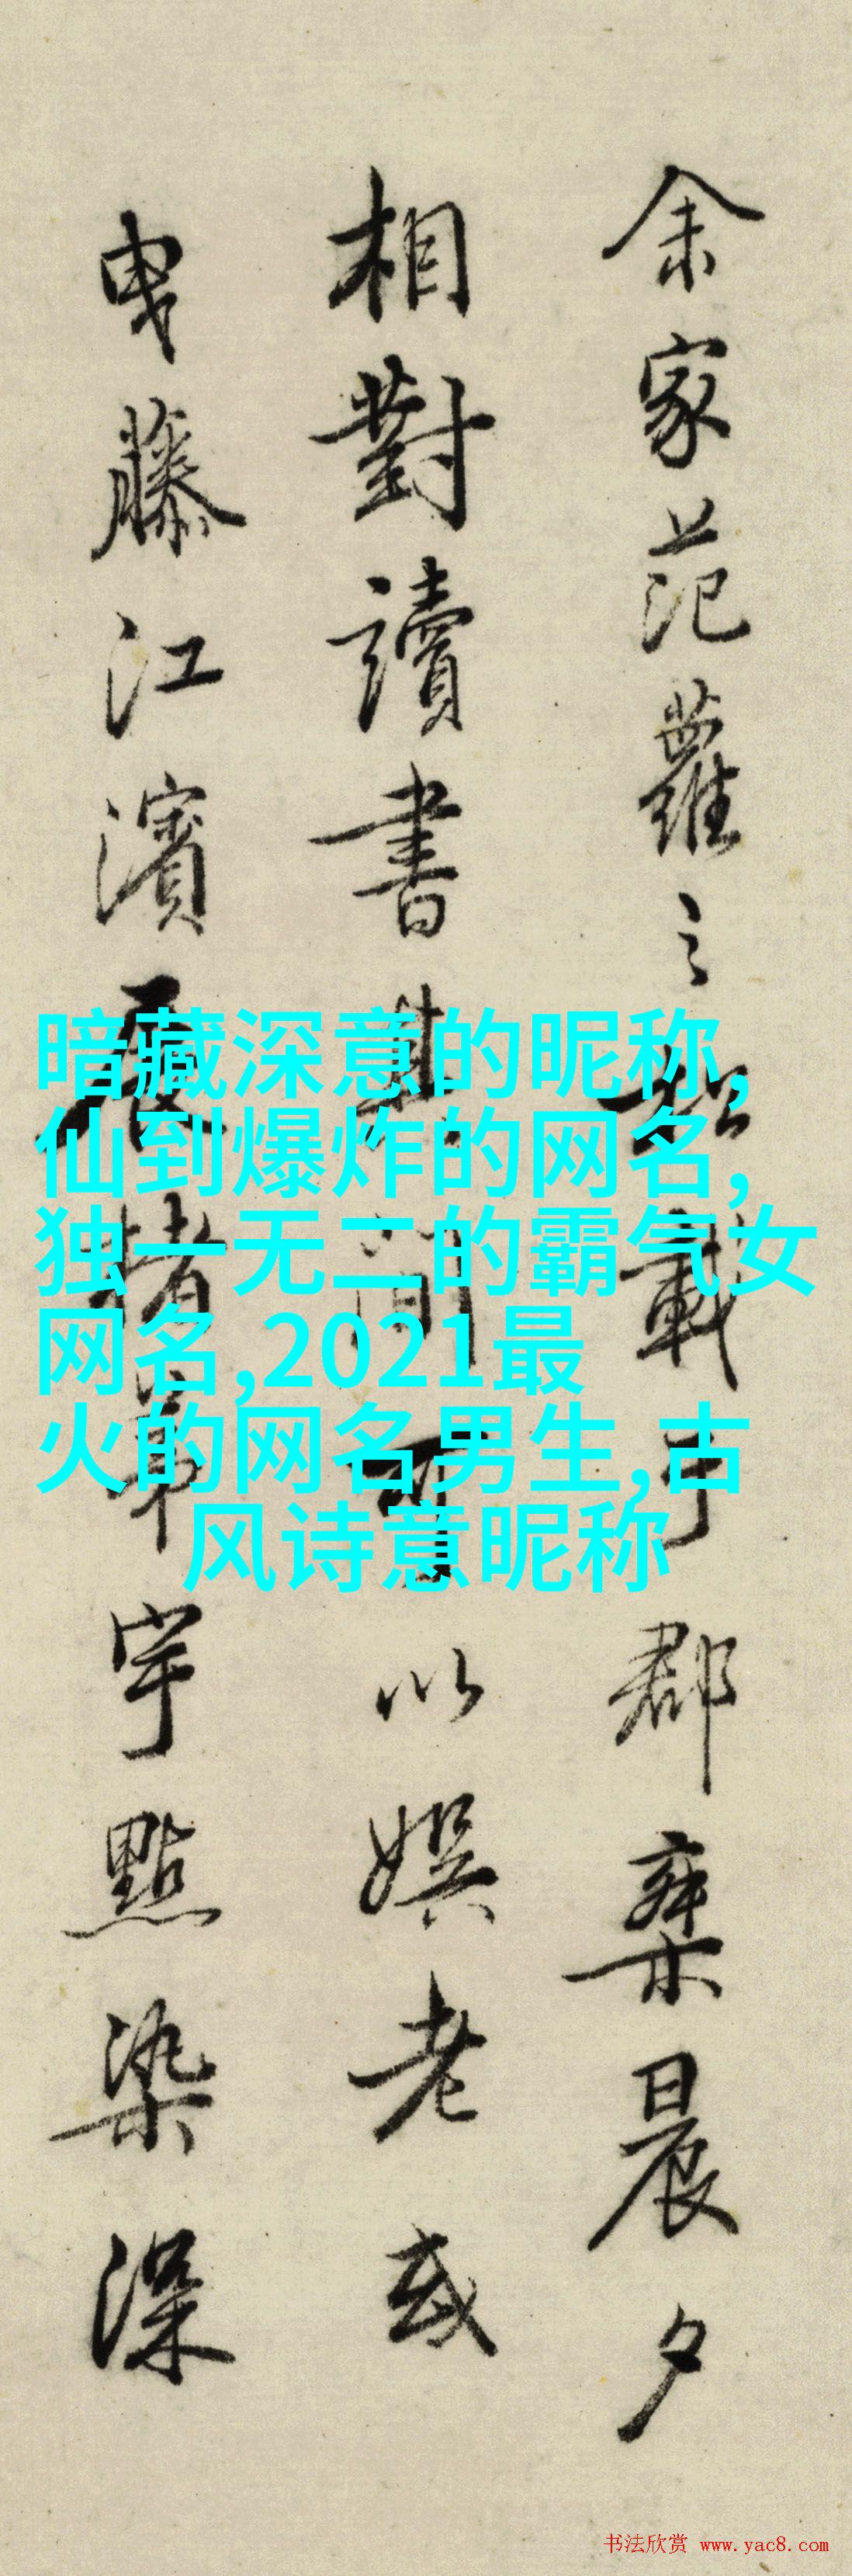 余家范蘿之
載于郡齋晨夕
相對讀書
以娱老或
曳藤江濱
宇點染深
暗藏深意的昵称,
仙到爆炸的网名,
独一无二的霸气女
网名,2021最
火的网名男生,古
风诗意昵称
书法欣赏 www.yac8.com